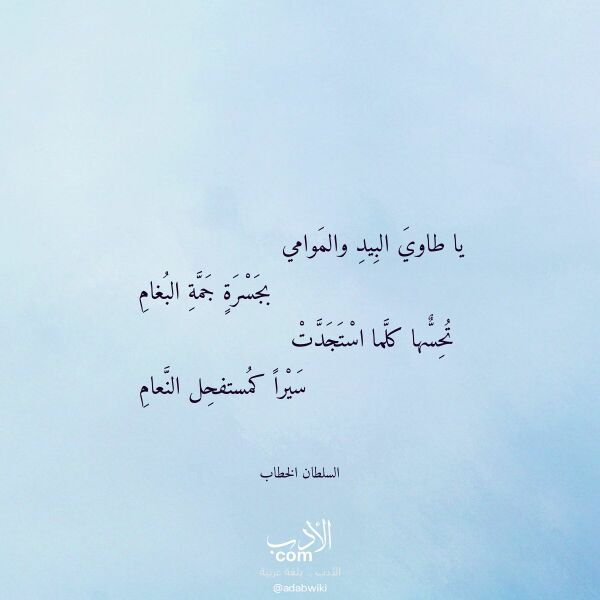 يا طاويَ البِيدِ والمَوامي
بجَسْرَةٍ جَمَّةِ البُغامِ
تُحِسُّها كلَّما اسْتَجَدَّتْ
سَيْراً كمُستفحِل النَّعامِ
السلطان الخطاب
الأدب
com
الأدب .. بلغة عربية
@adabwiki